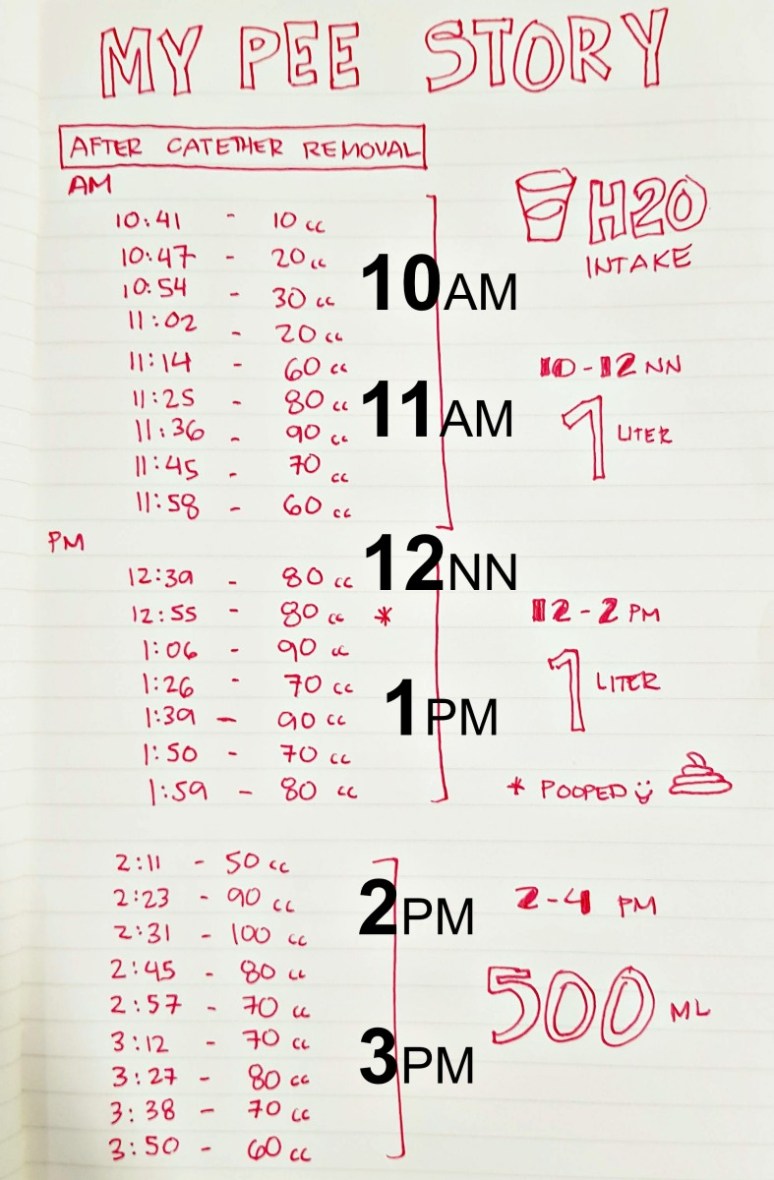 MY PEE STORY
AFTER CATETHER REMOVAL
AM
10:41 - 10 cc
10:47 - 20 cc
10:54 - 30 cc
11:02 - 20 cc
11:14 - 60 cc
11:25 - 80 cc
11:36 - 90 cc
11:45 - 70 cc
11:58 - 60 cc
10AM
11AM
H2O
INTAKE
10-12 NN
1 LITER
PM
12:39 - 80 cc
12:55 - 80 cc *
1:06 - 90 cc
1:26 - 70 cc
1:39 - 90 cc
1:50 - 70 cc
1:59 - 80 cc
12NN
1PM
12-2 PM
1 LITER
* POOPED
2:11 - 50 cc
2:23 - 90 cc
2:31 - 100 cc
2:45 - 80 cc
2:57 - 70 cc
3:12 - 70 cc
3:27 - 80 cc
3:38 - 70 cc
3:50 - 60 cc
2PM
3PM
2-4 PM
500 ML